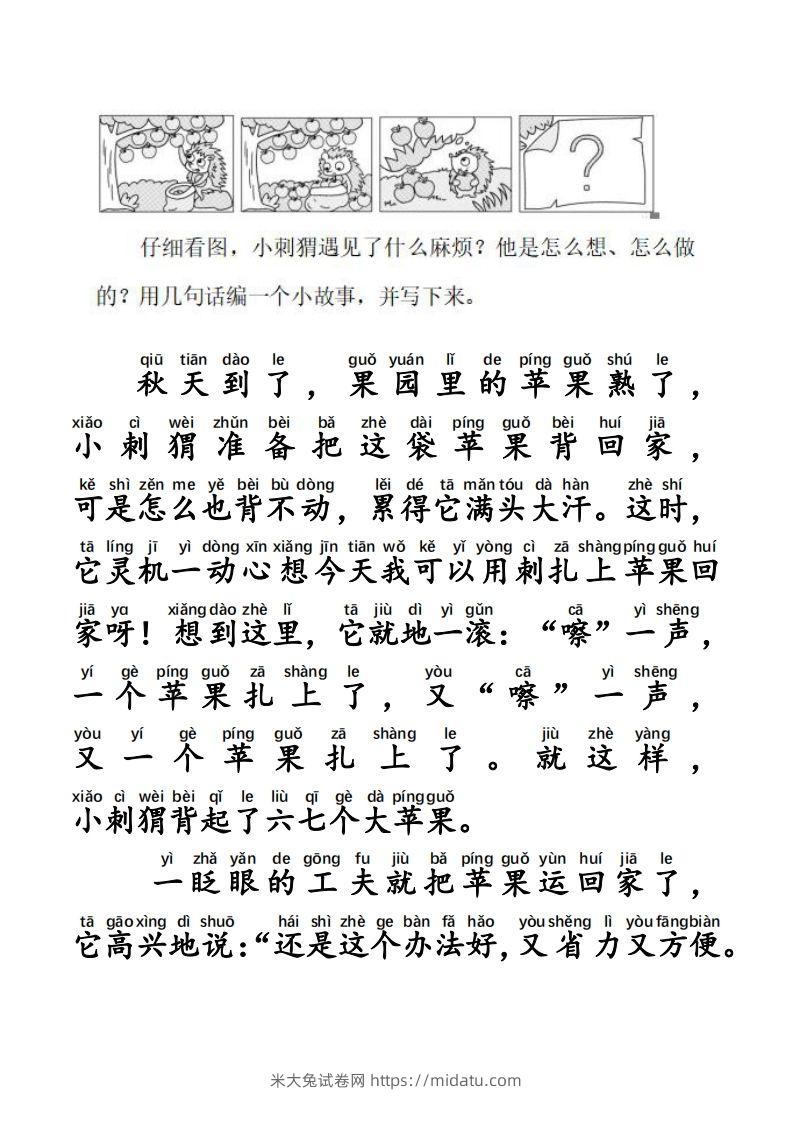 ?
仔细看图，小刺猬遇见了什么麻烦？他是怎么想、怎么做
的？用几句话编一个小故事，并写下来。
qiū tiān dào le guǒ yuán lǐ de píng guǒ shú le
秋天到了，果园里的苹果熟了，
xiǎo cì wèi zhǔn bèi bǎ zhè dài píng guǒ bèi huí jiā
小刺猬准备把这袋苹果背回家，
kě shì zěn me yě bèi bù dòng lěi dé tā mǎn tóu dà hàn zhè shí
可是怎么也背不动，累得它满头大汗。这时，
tā líng jī yì dòng xīn xiǎng jīn tiān wǒ kě yǐ yòng cì zā shàng píng guǒ huí
它灵机一动心想今天我可以用刺扎上苹果回
jiā ya xiǎng dào zhè lǐ tā jiù dì yì gǔn cā yì shēng
家呀！想到这里，它就地一滚：“嚓”一声，
yí gè píng guǒ zā shàng le yòu cā yì shēng
一个苹果扎上了，又“嚓”一声，
yòu yí gè píng guǒ zā shàng le jiù zhè yàng
又一个苹果扎上了。就这样，
xiǎo cì wèi bèi qǐ le liù qī gè dà píng guǒ
小刺猬背起了六七个大苹果。
yì zhǎ yǎn de gōng fu jiù bǎ píng guǒ yùn huí jiā le
一眨眼的工夫就把苹果运回家了，
tā gāo xìng dì shuō hái shì zhè ge bàn fǎ hǎo yòu shěng lì yòu fāng biàn
它高兴地说：“还是这个办法好，又省力又方便。
米大兔试卷网 https://midatu.com